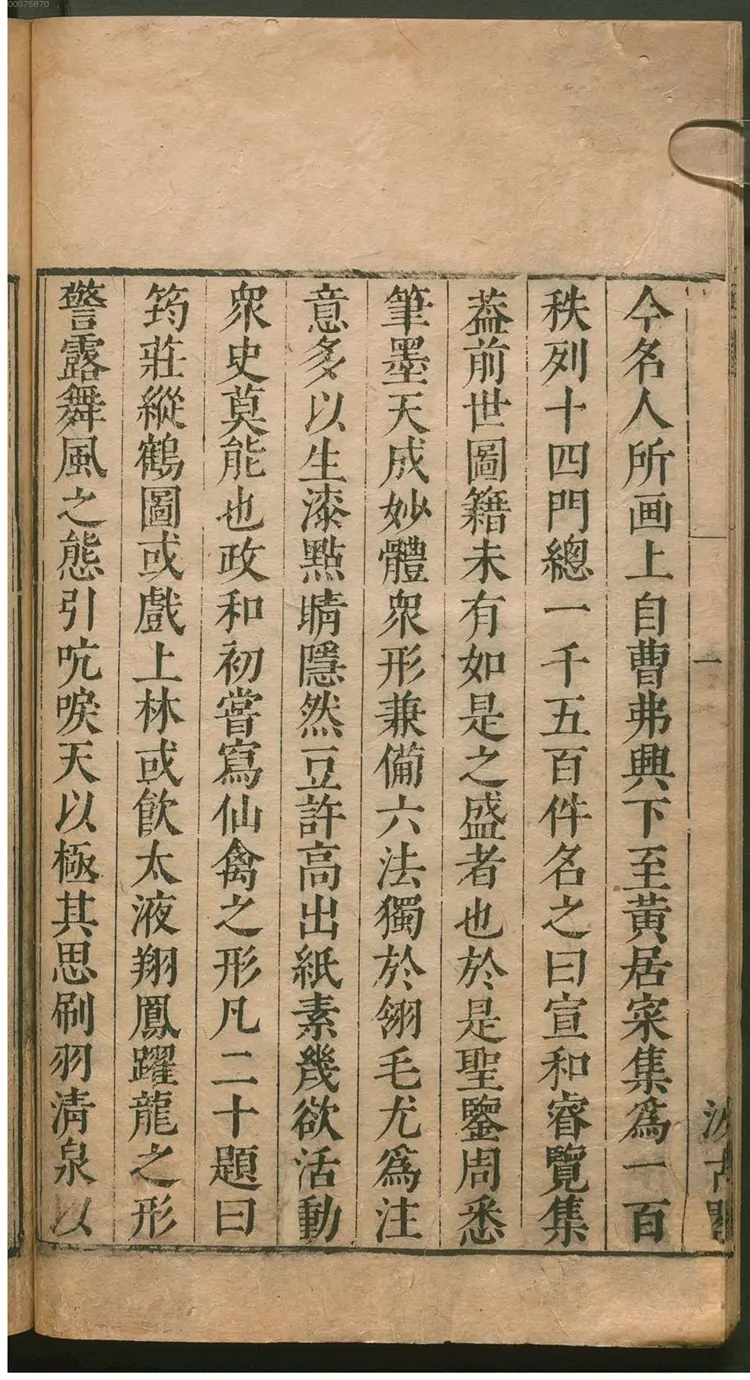 00075870
一
汲古閣
今名人所画上自曹弗興下至黃居寀集爲一百
秩列十四門總一千五百件名之曰宣和睿覽集
葢前世圖籍未有如是之盛者也於是聖鑒周悉
筆墨天成妙體衆形兼備六法獨於翎毛尤爲注
意多以生漆點睛隱然豆許高出紙素幾欲活動
衆史莫能也政和初嘗寫仙禽之形凡二十題曰
筠莊縱鶴圖或戲上林或飲太液翔鳳躍龍之形
警露舞風之態引吭唳天以極其思刷羽清泉以